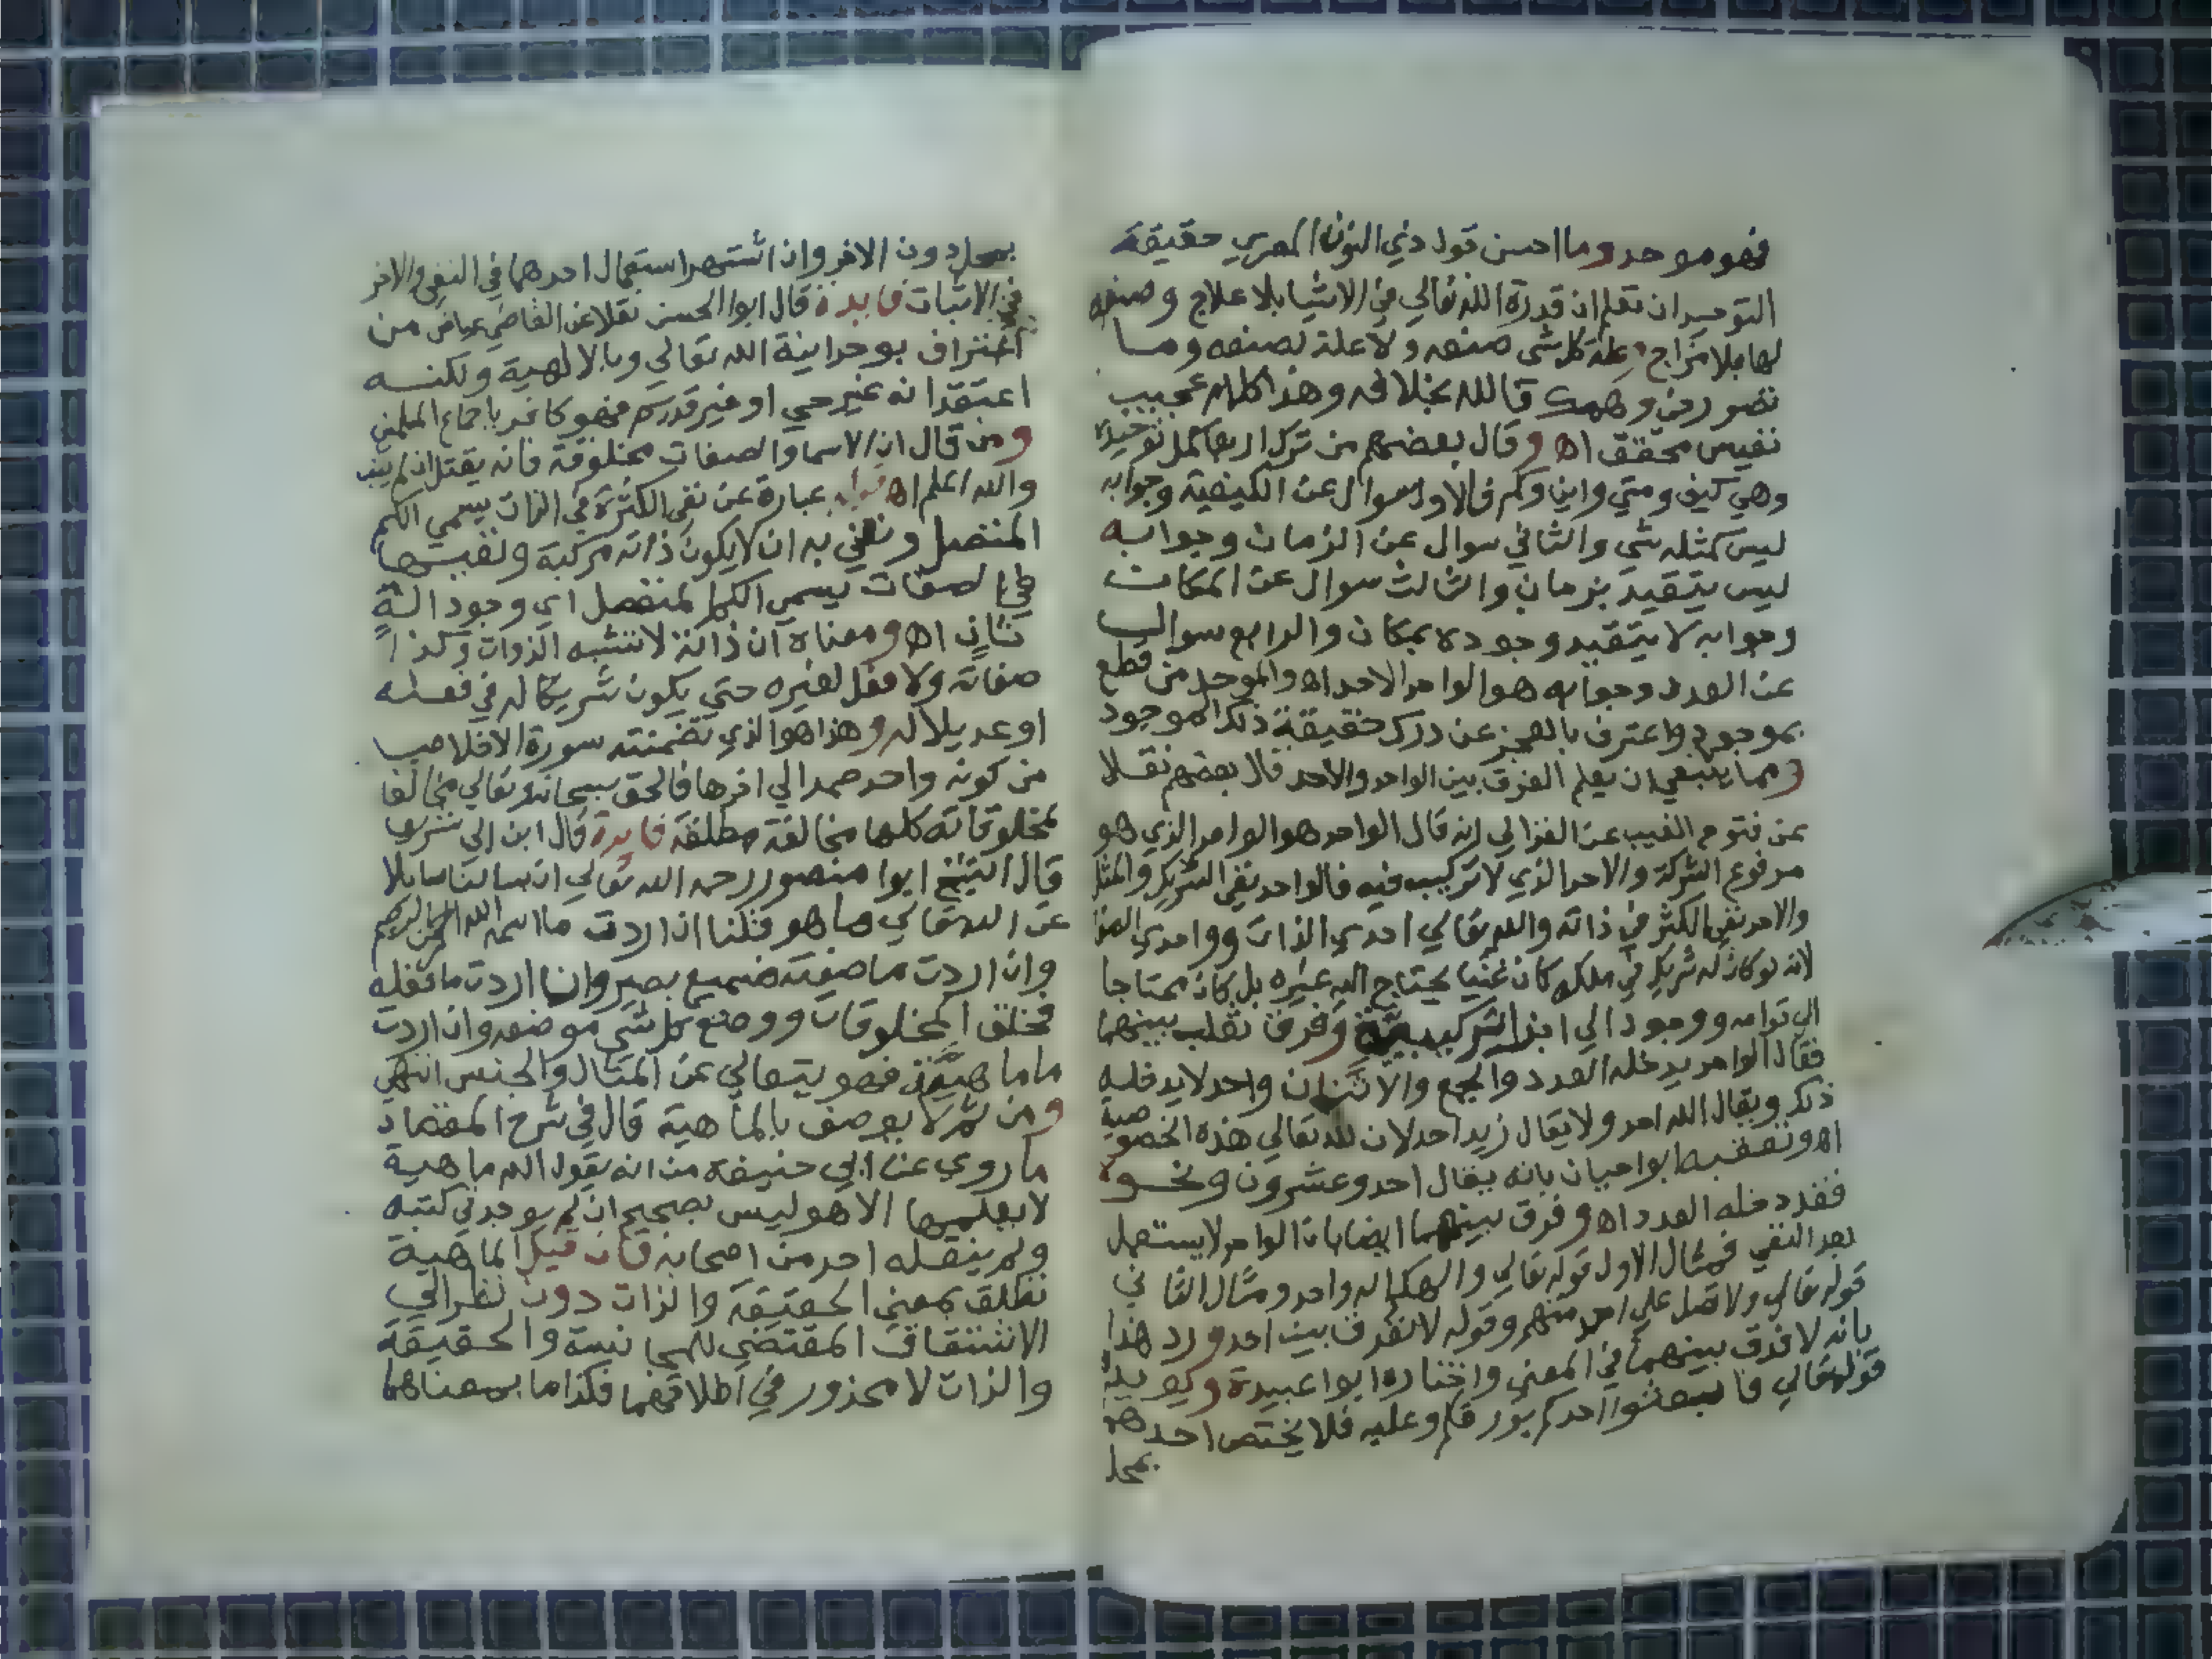 فهو موحد وما احسن قول ذي النون المصري حقيقة
التوحيد ان تعلم ان قدرة الله تعالي في الاشيا بلا علاج وصنعه
لها بلا مزاج وعلة كل شي صنعه ولا علة لصنعه وما
تصور في وهمك فالله بخلافه وهذا كلام عجيب
نفيس محقق اه وقال بعضهم من ترك اربعا كمل توحيده
وهي كيف ومتي واين وكم فالاول سوال عن الكيفية وجوابه
ليس كمثله شي والثاني سوال عن الزمان وجوابه
ليس يتقيد بزمان والثالث سوال عن المكان
وجوابه لا يتقيد وجوده بمكان والرابع سوال
عن العدد وجوابه هو الواحد الاحد اه والموحد من قطع
بموجود واعترف بالعجز عن درك حقيقة ذلك الموجود
ومما ينبغي ان يعلم الفرق بين الواحد والاحد قال بعضهم نقلا
عن فتوح الغيب عن الغزالي انه قال الواحد هو الواحد الذي هو
مرفوع الشركة والاحد الذي لا تركيب فيه فالواحد نفي الشريك والمثل
والاحد نفي الكثر في ذاته والله تعالي احدي الذات وواحدي
لانه لو كان له شريك في ملكه كان غنيا يحتاج اليه غيره بل كان محتاجا
الي قوامه ووجود الي اجزا التركيبية وفرق ثعلب بينهما
فقال الواحد يدخله العدد والجمع والاثنان واحد لا يدخله
ذلك ويقال الله احد ولا يقال زيد احد لان لله تعالي هذه الخصوصية
اه وتعقبه ابوا حيان بانه يقال احد وعشرون ونحوه
فقد دخله العدد اه وفرق بينهما ايضا بان الواحد لا يستعمل
بعد النفي فمثال الاول قوله تعالي والهكم اله واحد ومثال الثاني
قوله تعالي ولا تصل علي احد منهم وقوله لا نفرق بين احد ورد هذا
بانه لا فرق بينهما في المعني واختاره ابوا عبيدة ويويده
قوله تعالي فابعثوا احدكم بورقكم وعليه فلا يختص احدهما
بمحل
بمحل دون الاخر وان اشتهر استعمال احدهما في النفي والاخر
في الاثبات فايدة قال ابوا الحسن نقلا عن القاضي عياض من
اعترف بوحدانية الله تعالي وبالالهية ولكنه
اعتقد انه غير حي او غير قديم فهو كافر باجماع المسلمين
ومن قال ان الاسما والصفات مخلوقة فانه يقتل ان لم يتب
والله اعلم اه قوله عبارة عن نفي الكثرة في الذات يسمي الكم
المتصل ونعني به ان لا يكون ذاته مركبة ونفيها
في الصفات يسمي الكم المنفصل اي وجود اله
ثان اه ومعناه ان ذاته لا تشبه الذوات وكذا
صفاته ولا فعل لغيره حتي يكون شريكا له في فعله
او عديلا له وهذا هو الذي تضمنته سورة الاخلاص
من كونه واحد صمدا الي اخرها فالحق سبحانه وتعالي مخالفا
لمخلوقاته كلها مخالفة مطلقة فايدة قال ابن ابي شريف
قال الشيخ ابوا منصور رحمه الله تعالي ان سالنا سايلا
عن الله تعالي ما هو فقلنا ان اردت ما اسمه الله الرحمن الرحيم
وان اردت ما صفته فسميع بصير وان اردت ما فعله
فخلق المخلوقات ووضع كل شي موضعه وان اردت
ما ماهيته فهو يتعالي عن المثال والجنس انتهي
ومن ثم لا يوصف بالماهية قال في شرح المقصاد
ما روي عن ابي حنيفة من انه يقول الله ماهية
لا يعلمها الا هو ليس بصحيح ان لم يوجد في كتبه
ولم ينقله احد من اصحابه فان قيل الماهية
تطلق بمعني الحقيقة والذات دون نظر الي
الاشتقاق المقتضي للمجانسة والحقيقة
والذات لا محذور في اطلاقهما فكذا ما بمعناهما